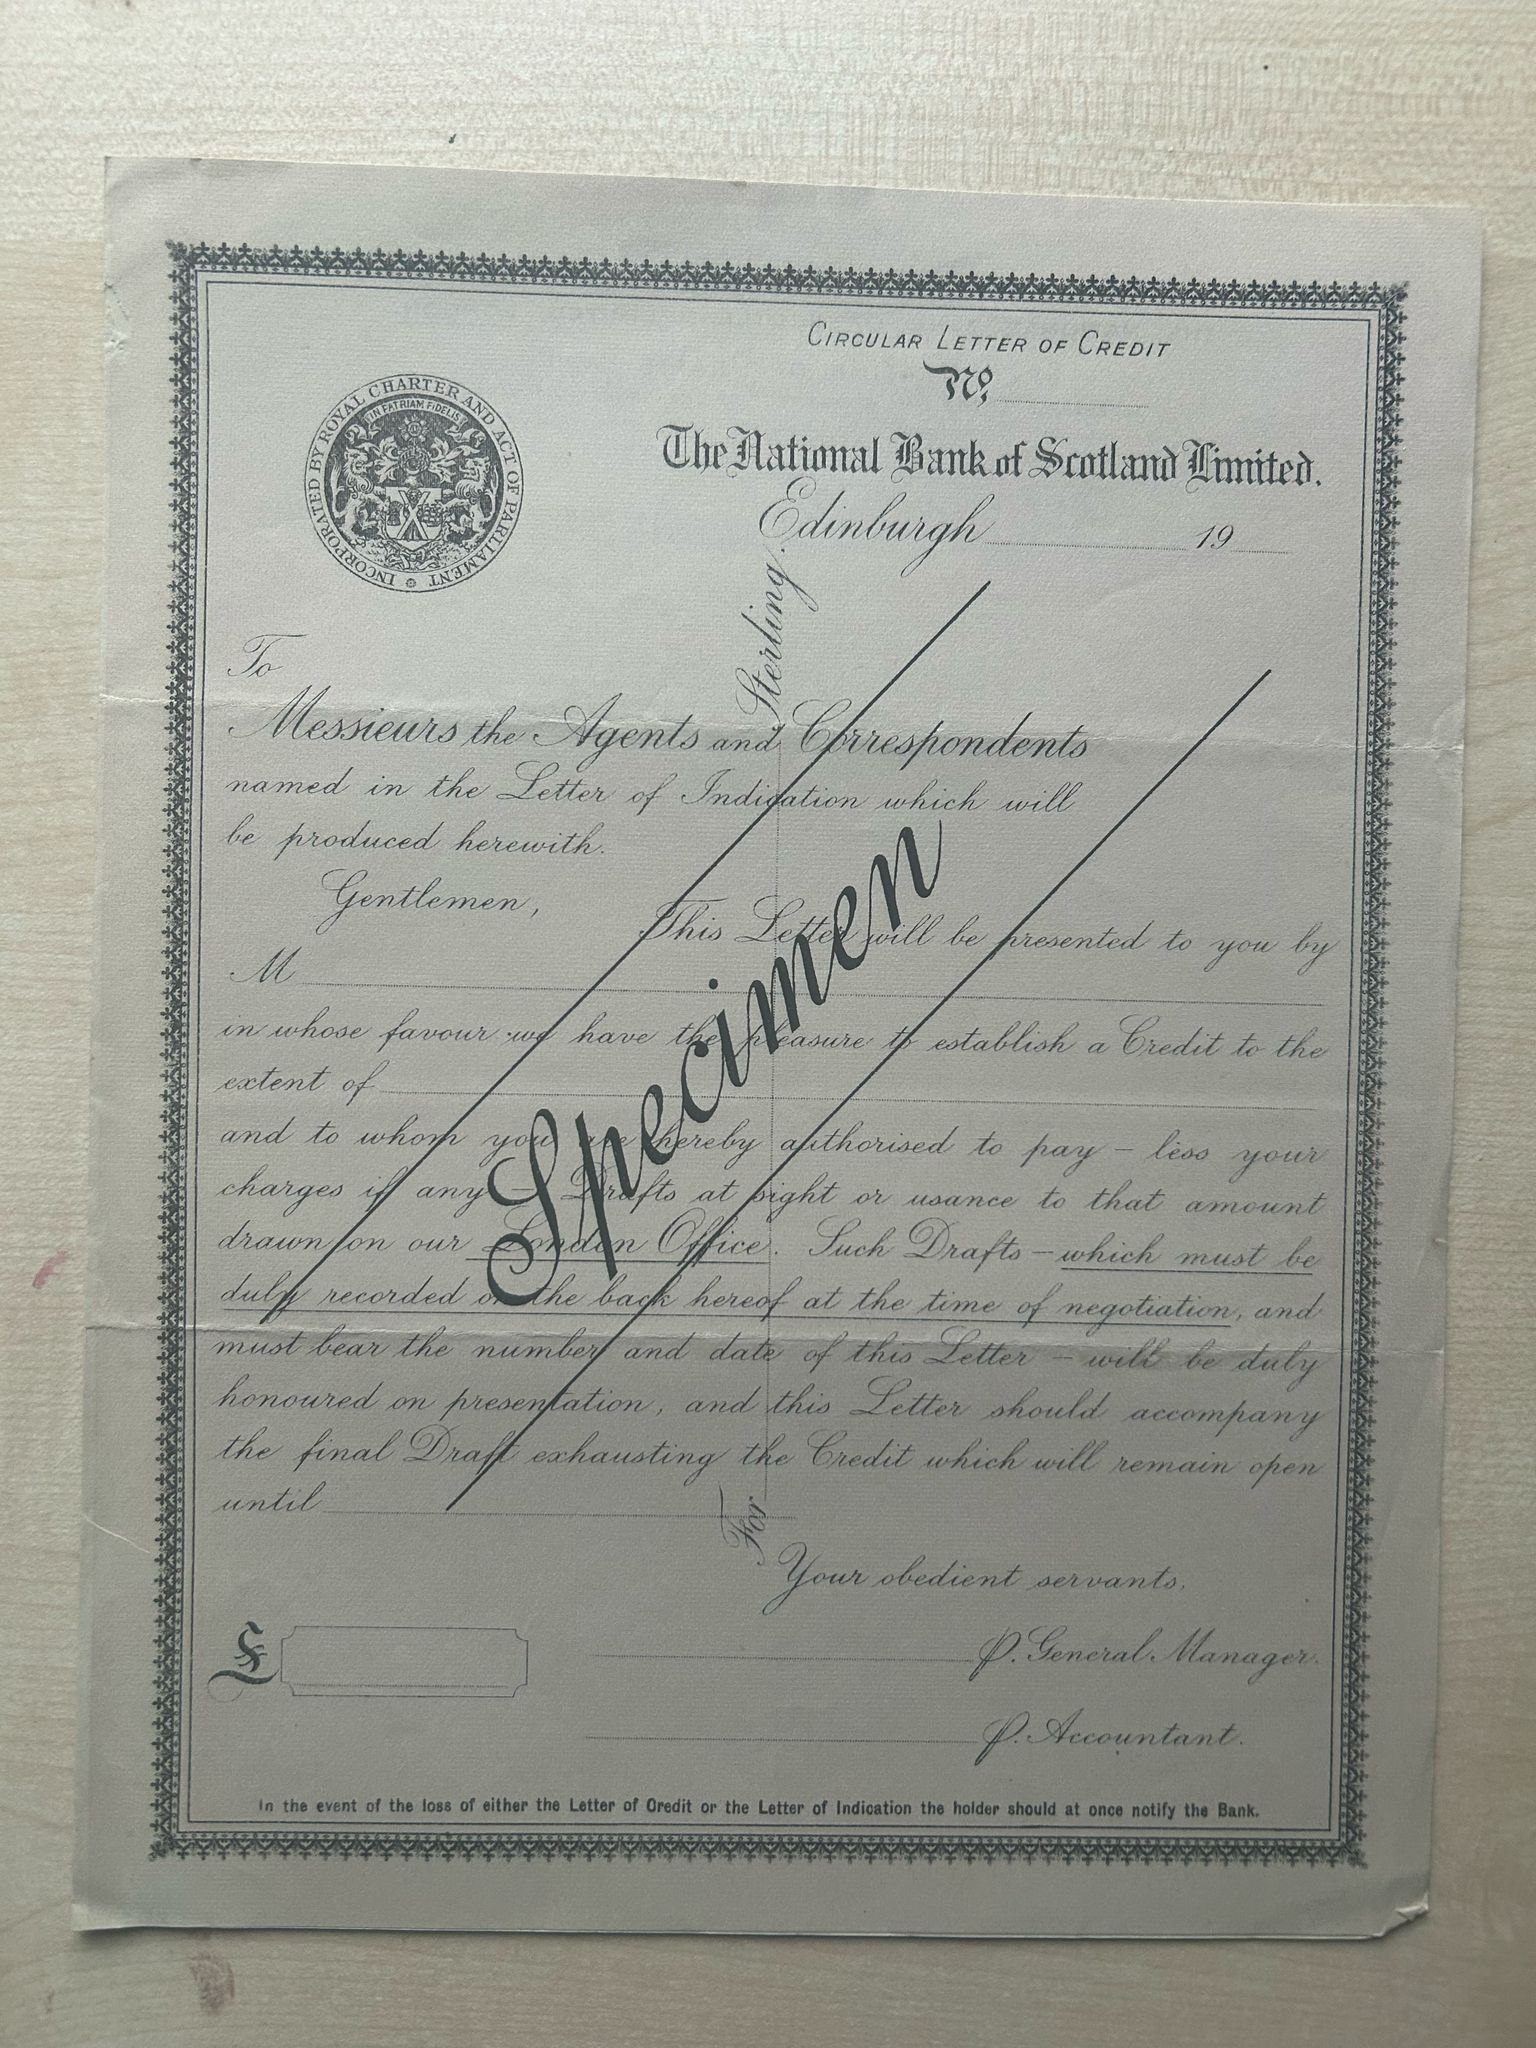 CIRCULAR LETTER OF CREDIT
No.
INCORPORATED BY ROYAL CHARTER AND ACT OF PARLIAMENT
IN PATRIAM FIDELIS
The National Bank of Scotland Limited.
Edinburgh 19
To
Messieurs the Agents and Correspondents
named in the Letter of Indication which will
be produced herewith.
Gentlemen,
This Letter will be presented to you by
M
in whose favour we have the pleasure to establish a Credit to the
extent of
and to whom you are hereby authorised to pay – less your
charges if any – Drafts at sight or usance to that amount
drawn on our London Office. Such Drafts – which must be
duly recorded on the back hereof at the time of negotiation, and
must bear the number and date of this Letter – will be duly
honoured on presentation, and this Letter should accompany
the final Draft exhausting the Credit which will remain open
until
For Sterling.
Specimen
Your obedient servants,
£
P. General Manager.
P. Accountant.
In the event of the loss of either the Letter of Credit or the Letter of Indication the holder should at once notify the Bank.